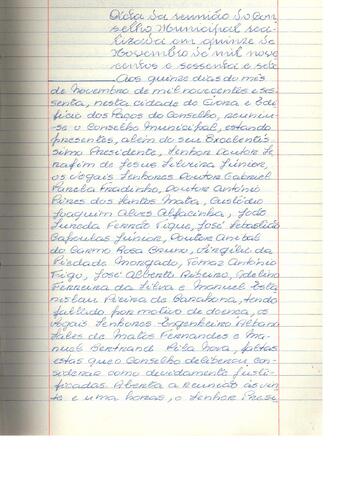 Acta da reunião do Con
selho Municipal rea
lizada em quinze de
Novembro de mil nove
centos e sessenta e sete
Aos quinze dias do mês
de Novembro de mil novecentos e ses
senta, nesta cidade de Évora e Edi
fício dos Paços do Concelho, reuniu-
se o Conselho Municipal, estando
presentes, além do seu Excelentís
simo Presidente, Senhor Doutor Se
rafim de Jesus Silveira Júnior,
os vogais Senhores Doutor Gabriel
Fradinho, Doutor António
Pires dos Santos Mata, Custódio
Joaquim Alves Alfacinha, João
Ferrão Figo, José Sebastião
Júnior, Doutor Anibal
do Carmo Rosa Bruno, Virgilial da
Piedade Morgado, Tomaz António
Figo, José Alberto Ribeiro, Adelino
Ferreira da Silva e Manuel Esta
nislau Vieira de Barahona, tendo
faltado, por motivo de doença, os
vogais Senhores Engenheiro Albano
Sales de Matos Fernandes e Ma
nuel Bertrand Vila Nova, faltas
estas que o Conselho deliberou con
siderar como devidamente justi
ficadas. Aberta a reunião às vin
te e uma horas, o Senhor Presi